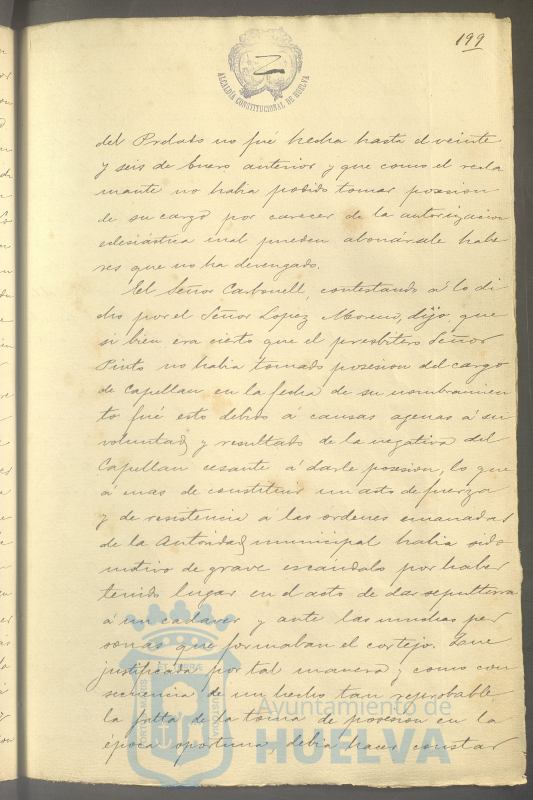 199
ALCALDÍA CONSTITUCIONAL DE HUELVA
del Prelado no fué hecha hasta el veinte
y seis de Enero anterior y que como el recla
mante no habia podido tomar posesion
de su cargo por carecer de la autorizacion
eclesiástica mal pueden abonársele habe
res que no ha devengado.
El Señor Carbonell, contestando á lo di
cho por el Señor Lopez Moreno, dijo, que
si bien era cierto que el presbitero Señor
Pinto no habia tomado posesion del cargo
de Capellan en la fecha de su nombramien
to fué esto debido á causas agenas á su
voluntad y resultado de la negativa del
Capellan cesante á darle posesion, lo que
á mas de constituir un acto de fuerza
y de resistencia á las ordenes emanadas
de la Autoridad municipal habia sido
motivo de grave escándalo por haber
tenido lugar en el acto de dar sepultura
á un cadaver y ante las muchas per
sonas que formaban el cortejo. Que
justificada por tal manera y como con
secuencia de un hecho tan reprobable
la falta de la toma de posesion en la
época oportuna debia hacer constar
Ayuntamiento de
HUELVA